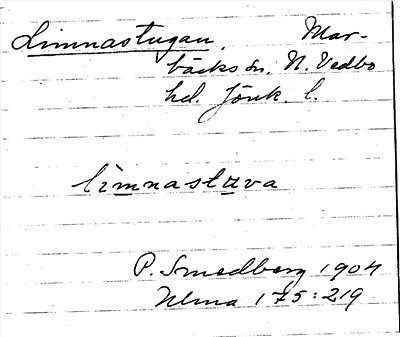 Limnastugan, Mar-
bäcks sn. N. Vedbo
hd. Jönk. l.
limnastuva
P. Smedberg 1904
Ulma 175:219